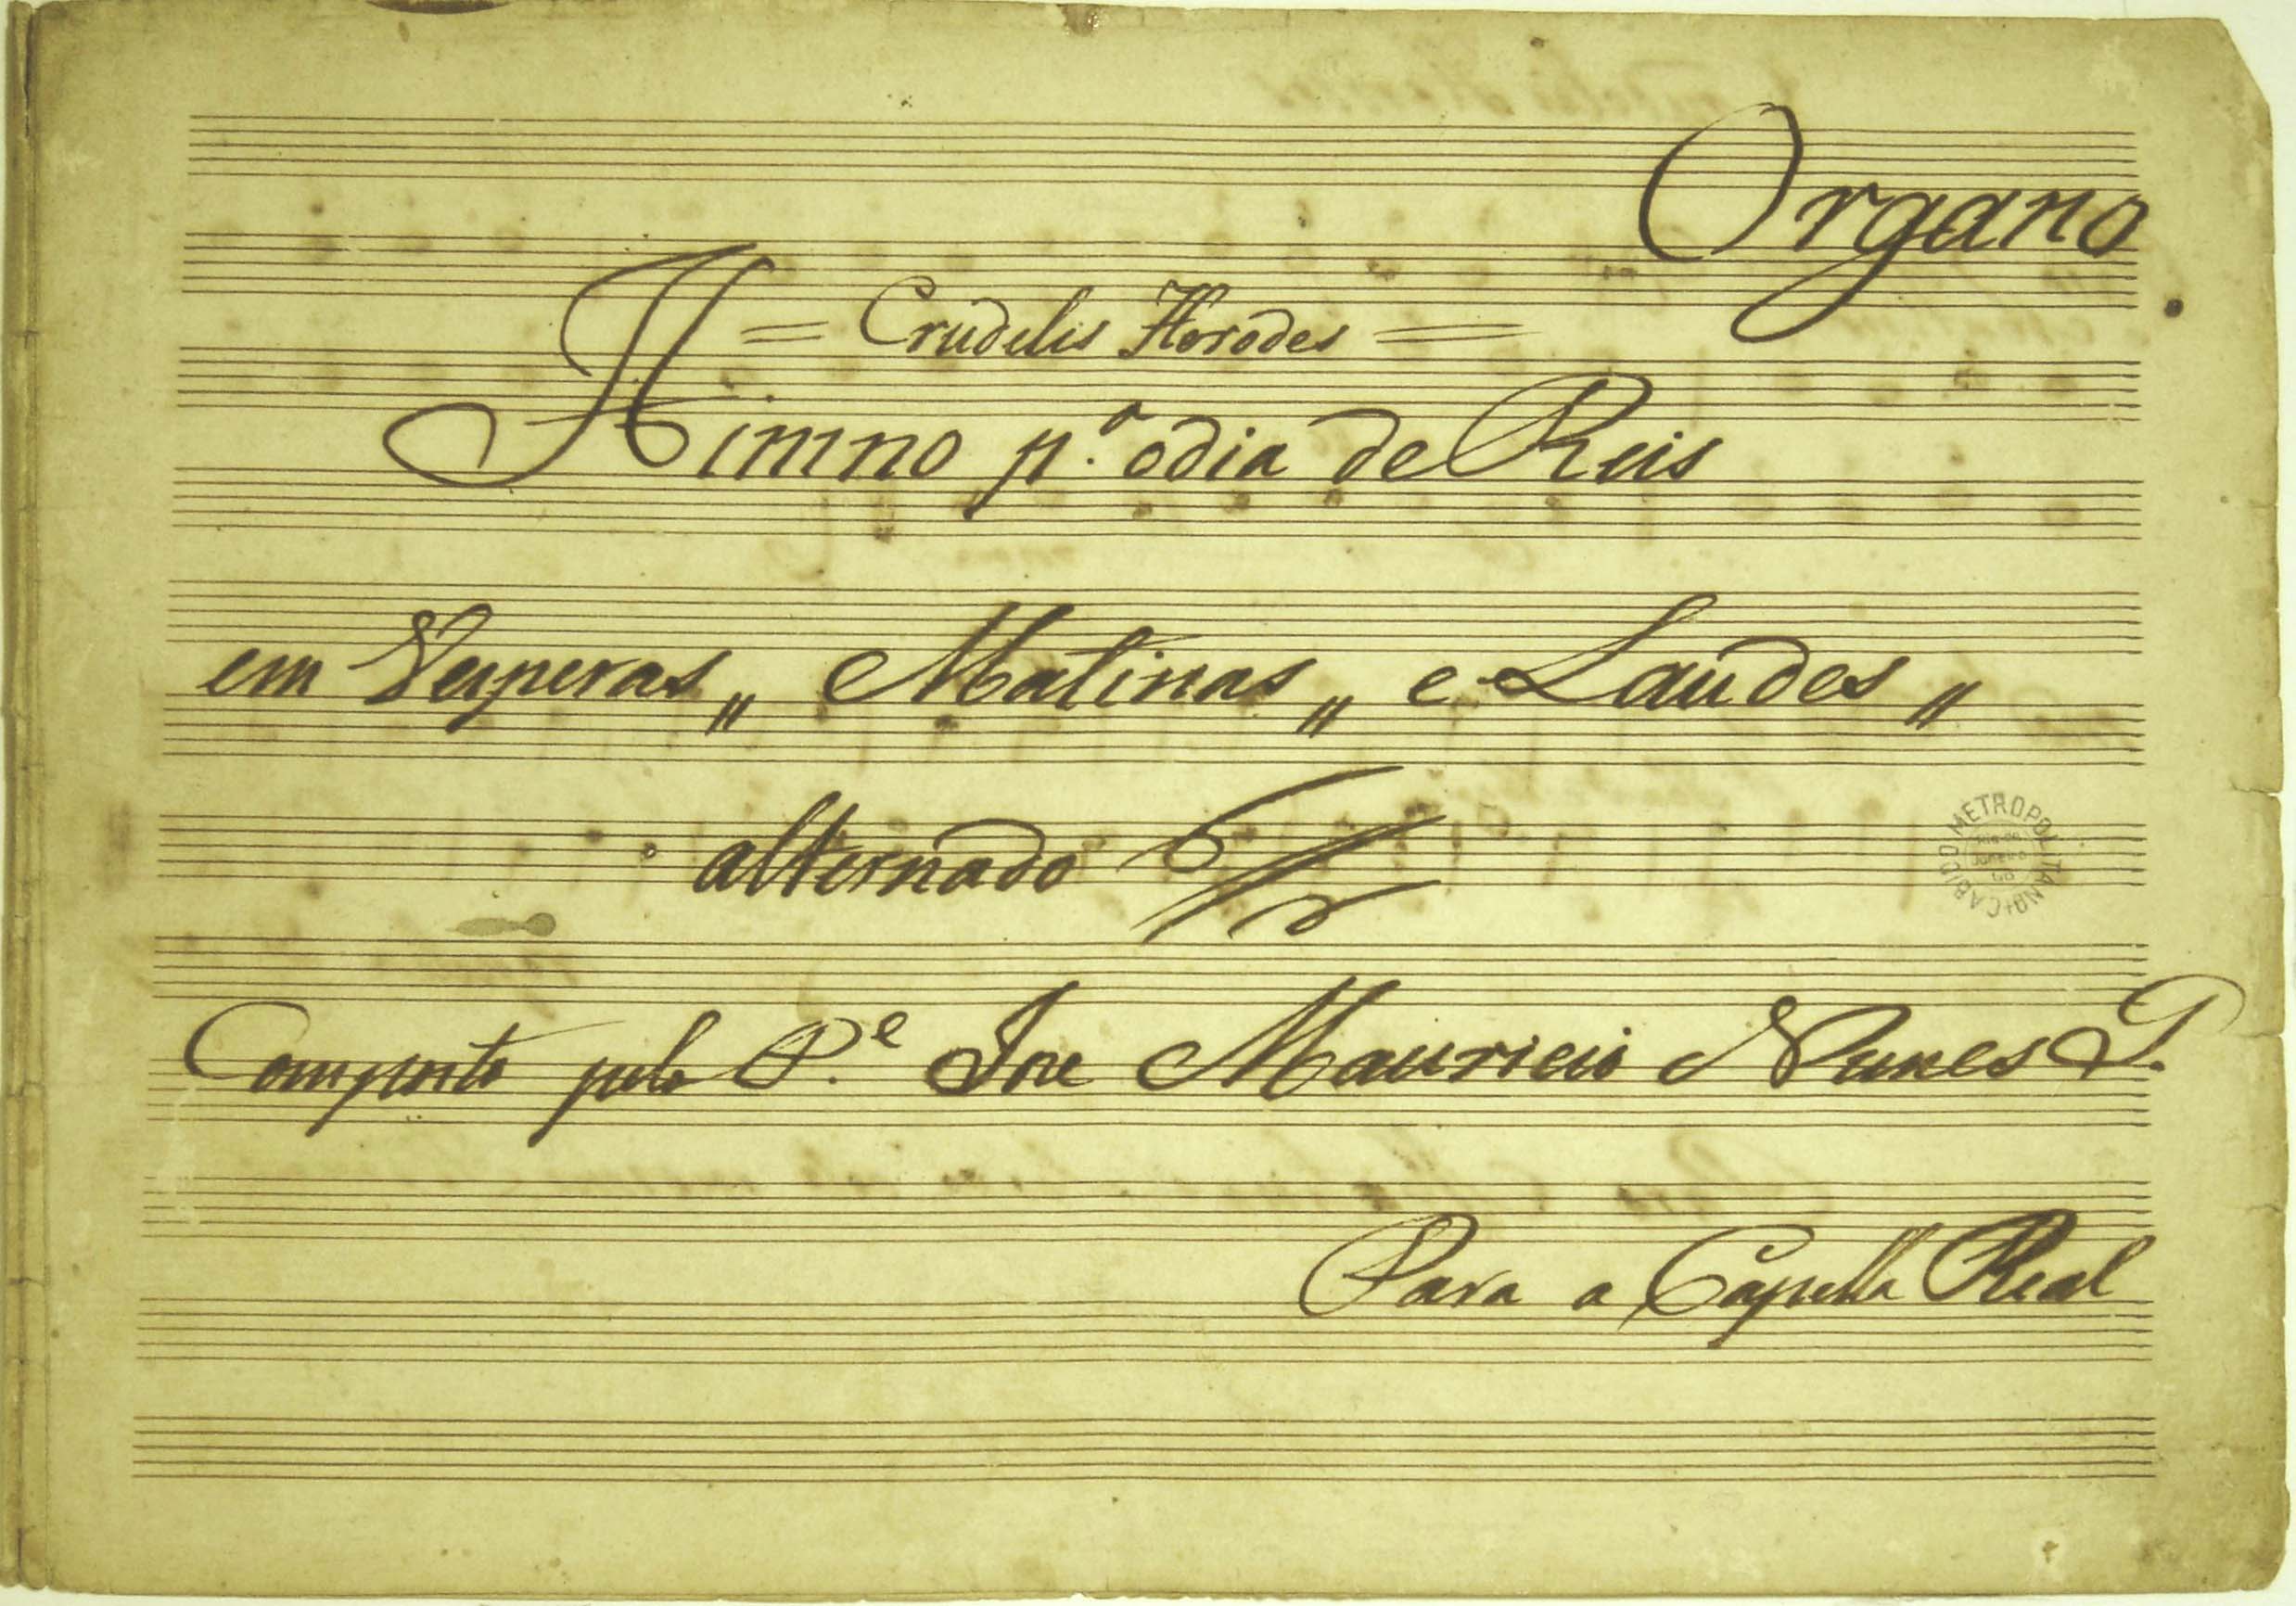 Organo
= Crudelis Herodes =
Himno p.ª odia de Reis
em Vesperas „ Matinas „ e Laudes „
alternado
Composto pelo P.e Joze Mauricio Nunes G.
CABIDO METROPOLITANO
Rio de Janeiro
Para a Capella Real